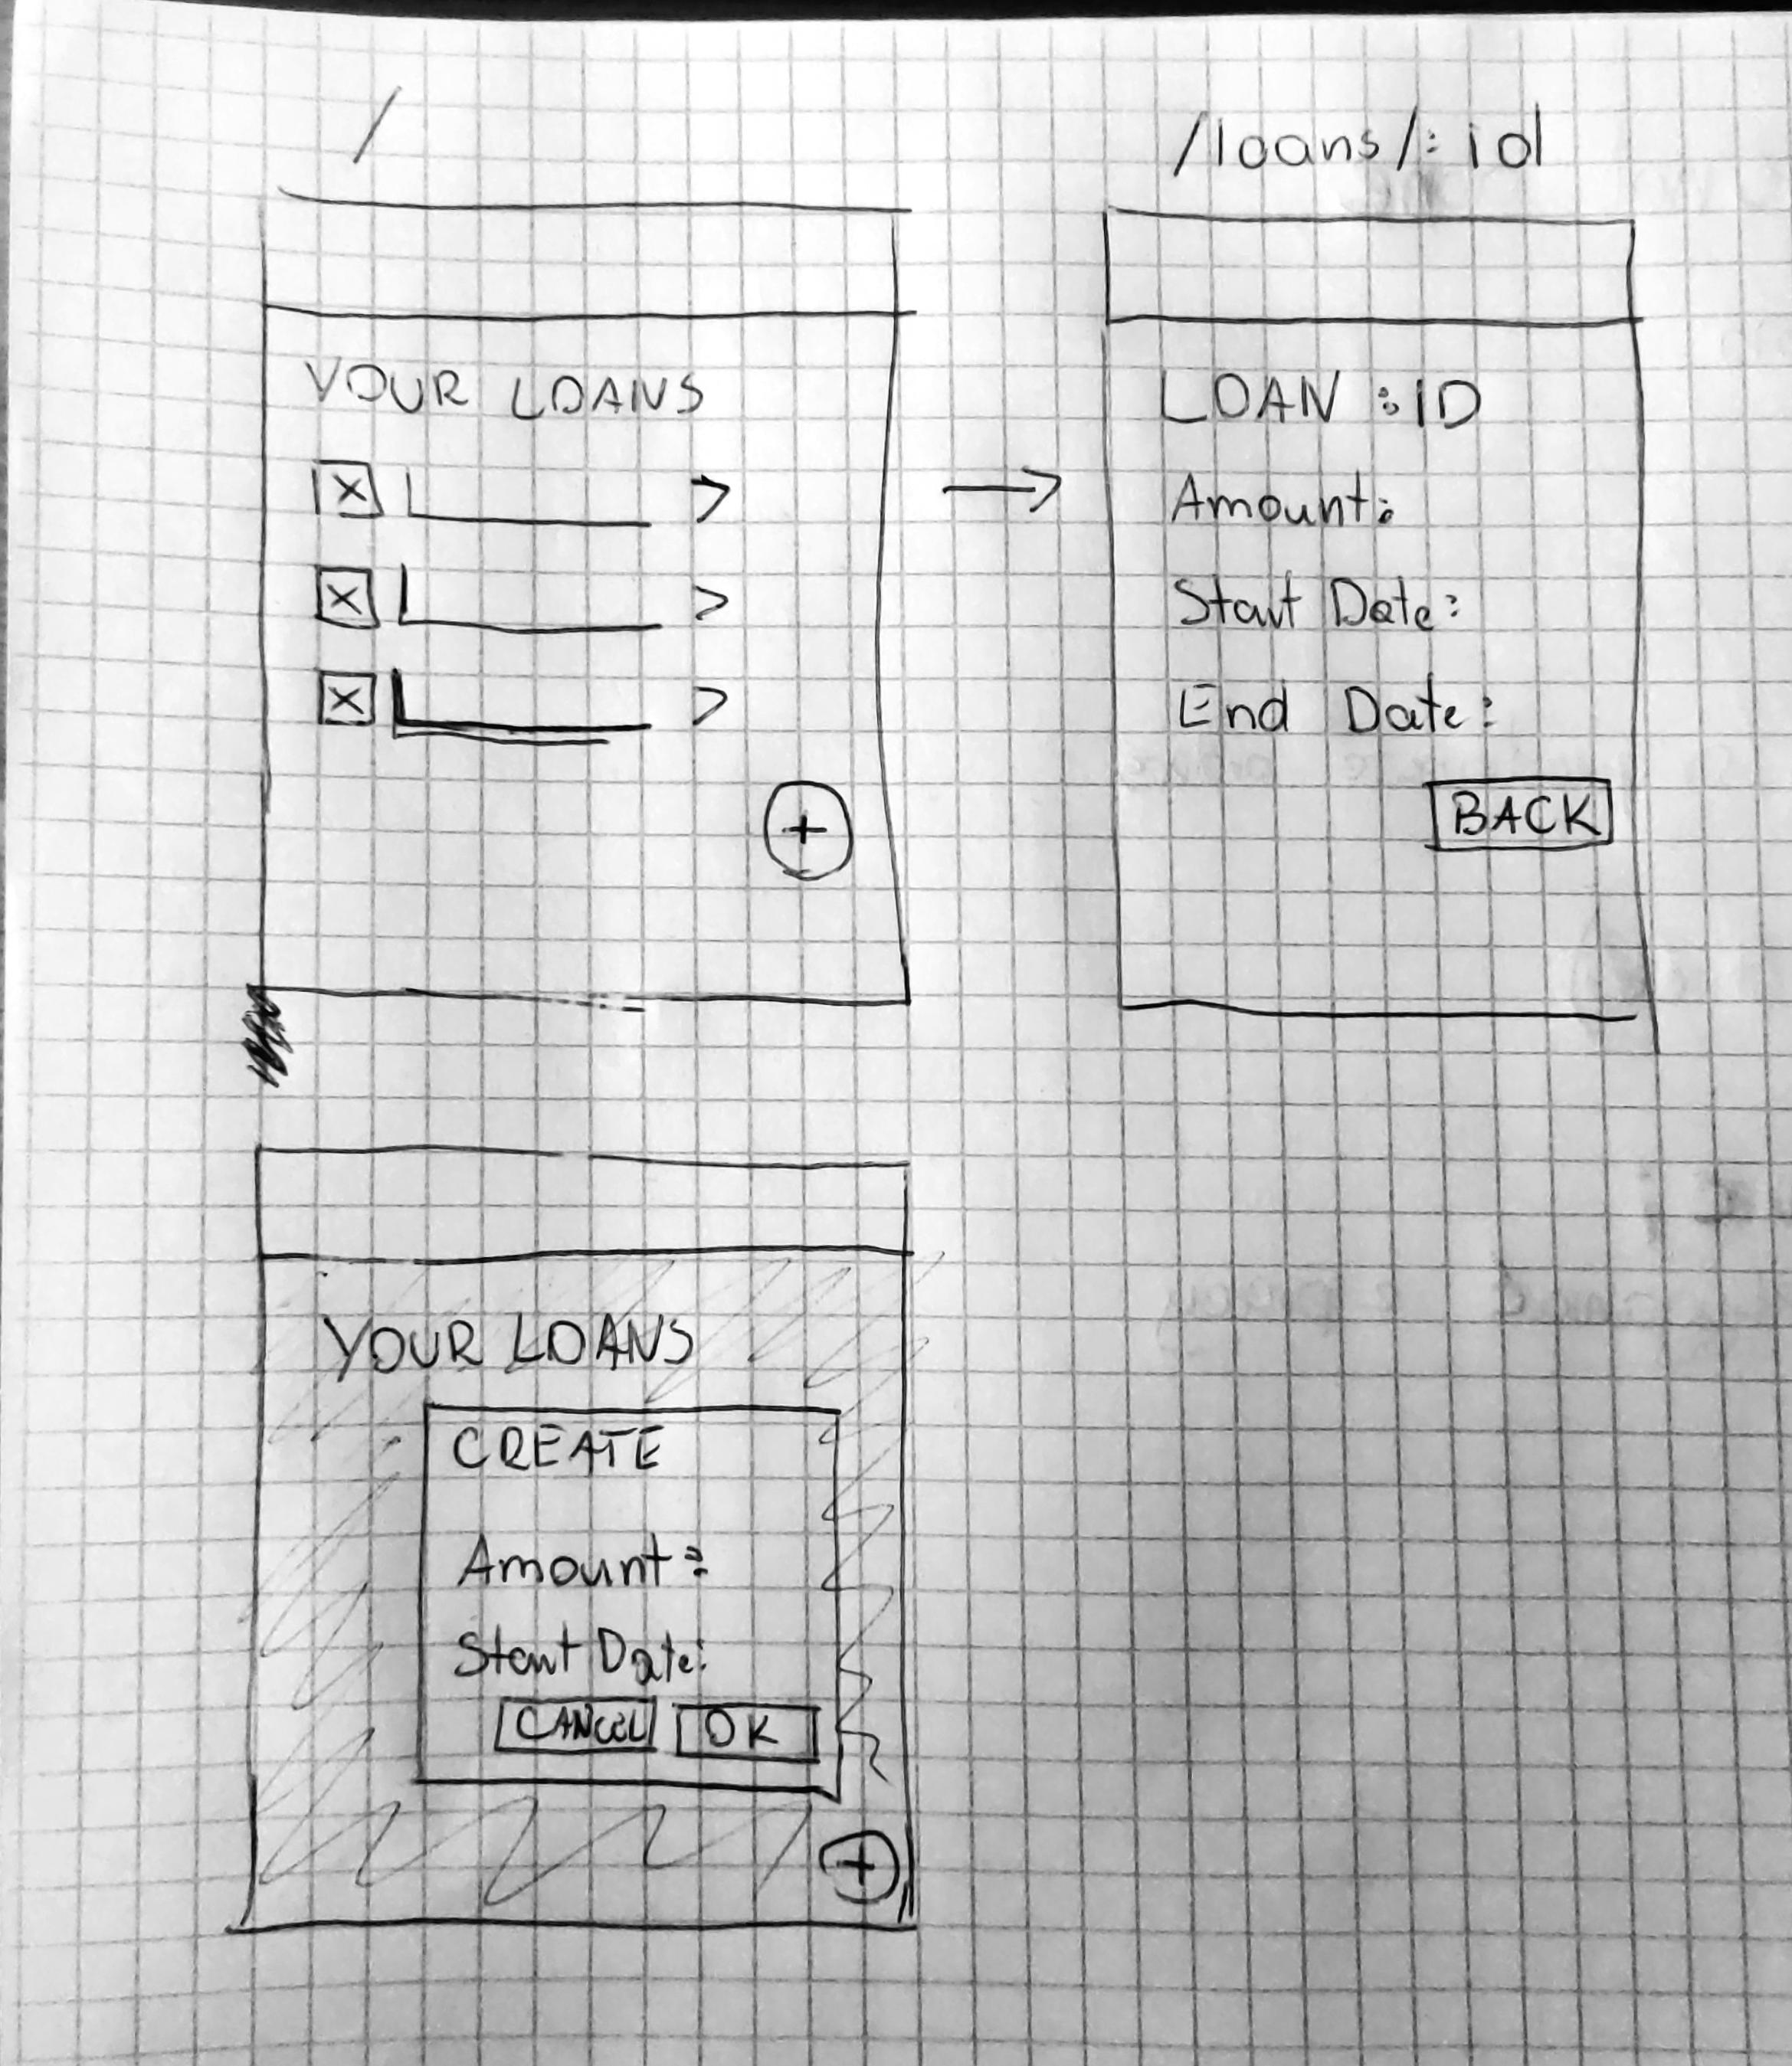 /
YOUR LOANS
X >
X >
X >
+
/loans/:id
LOAN :ID
Amount:
Start Date:
End Date:
BACK
YOUR LOANS
CREATE
Amount:
Start Date:
CANCEL OK
+